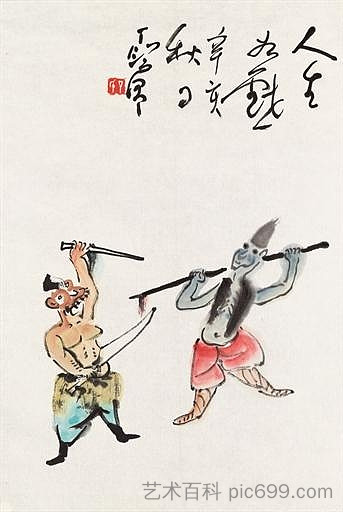 人生
如戲
辛亥
秋日
艺术百科 pic699.com